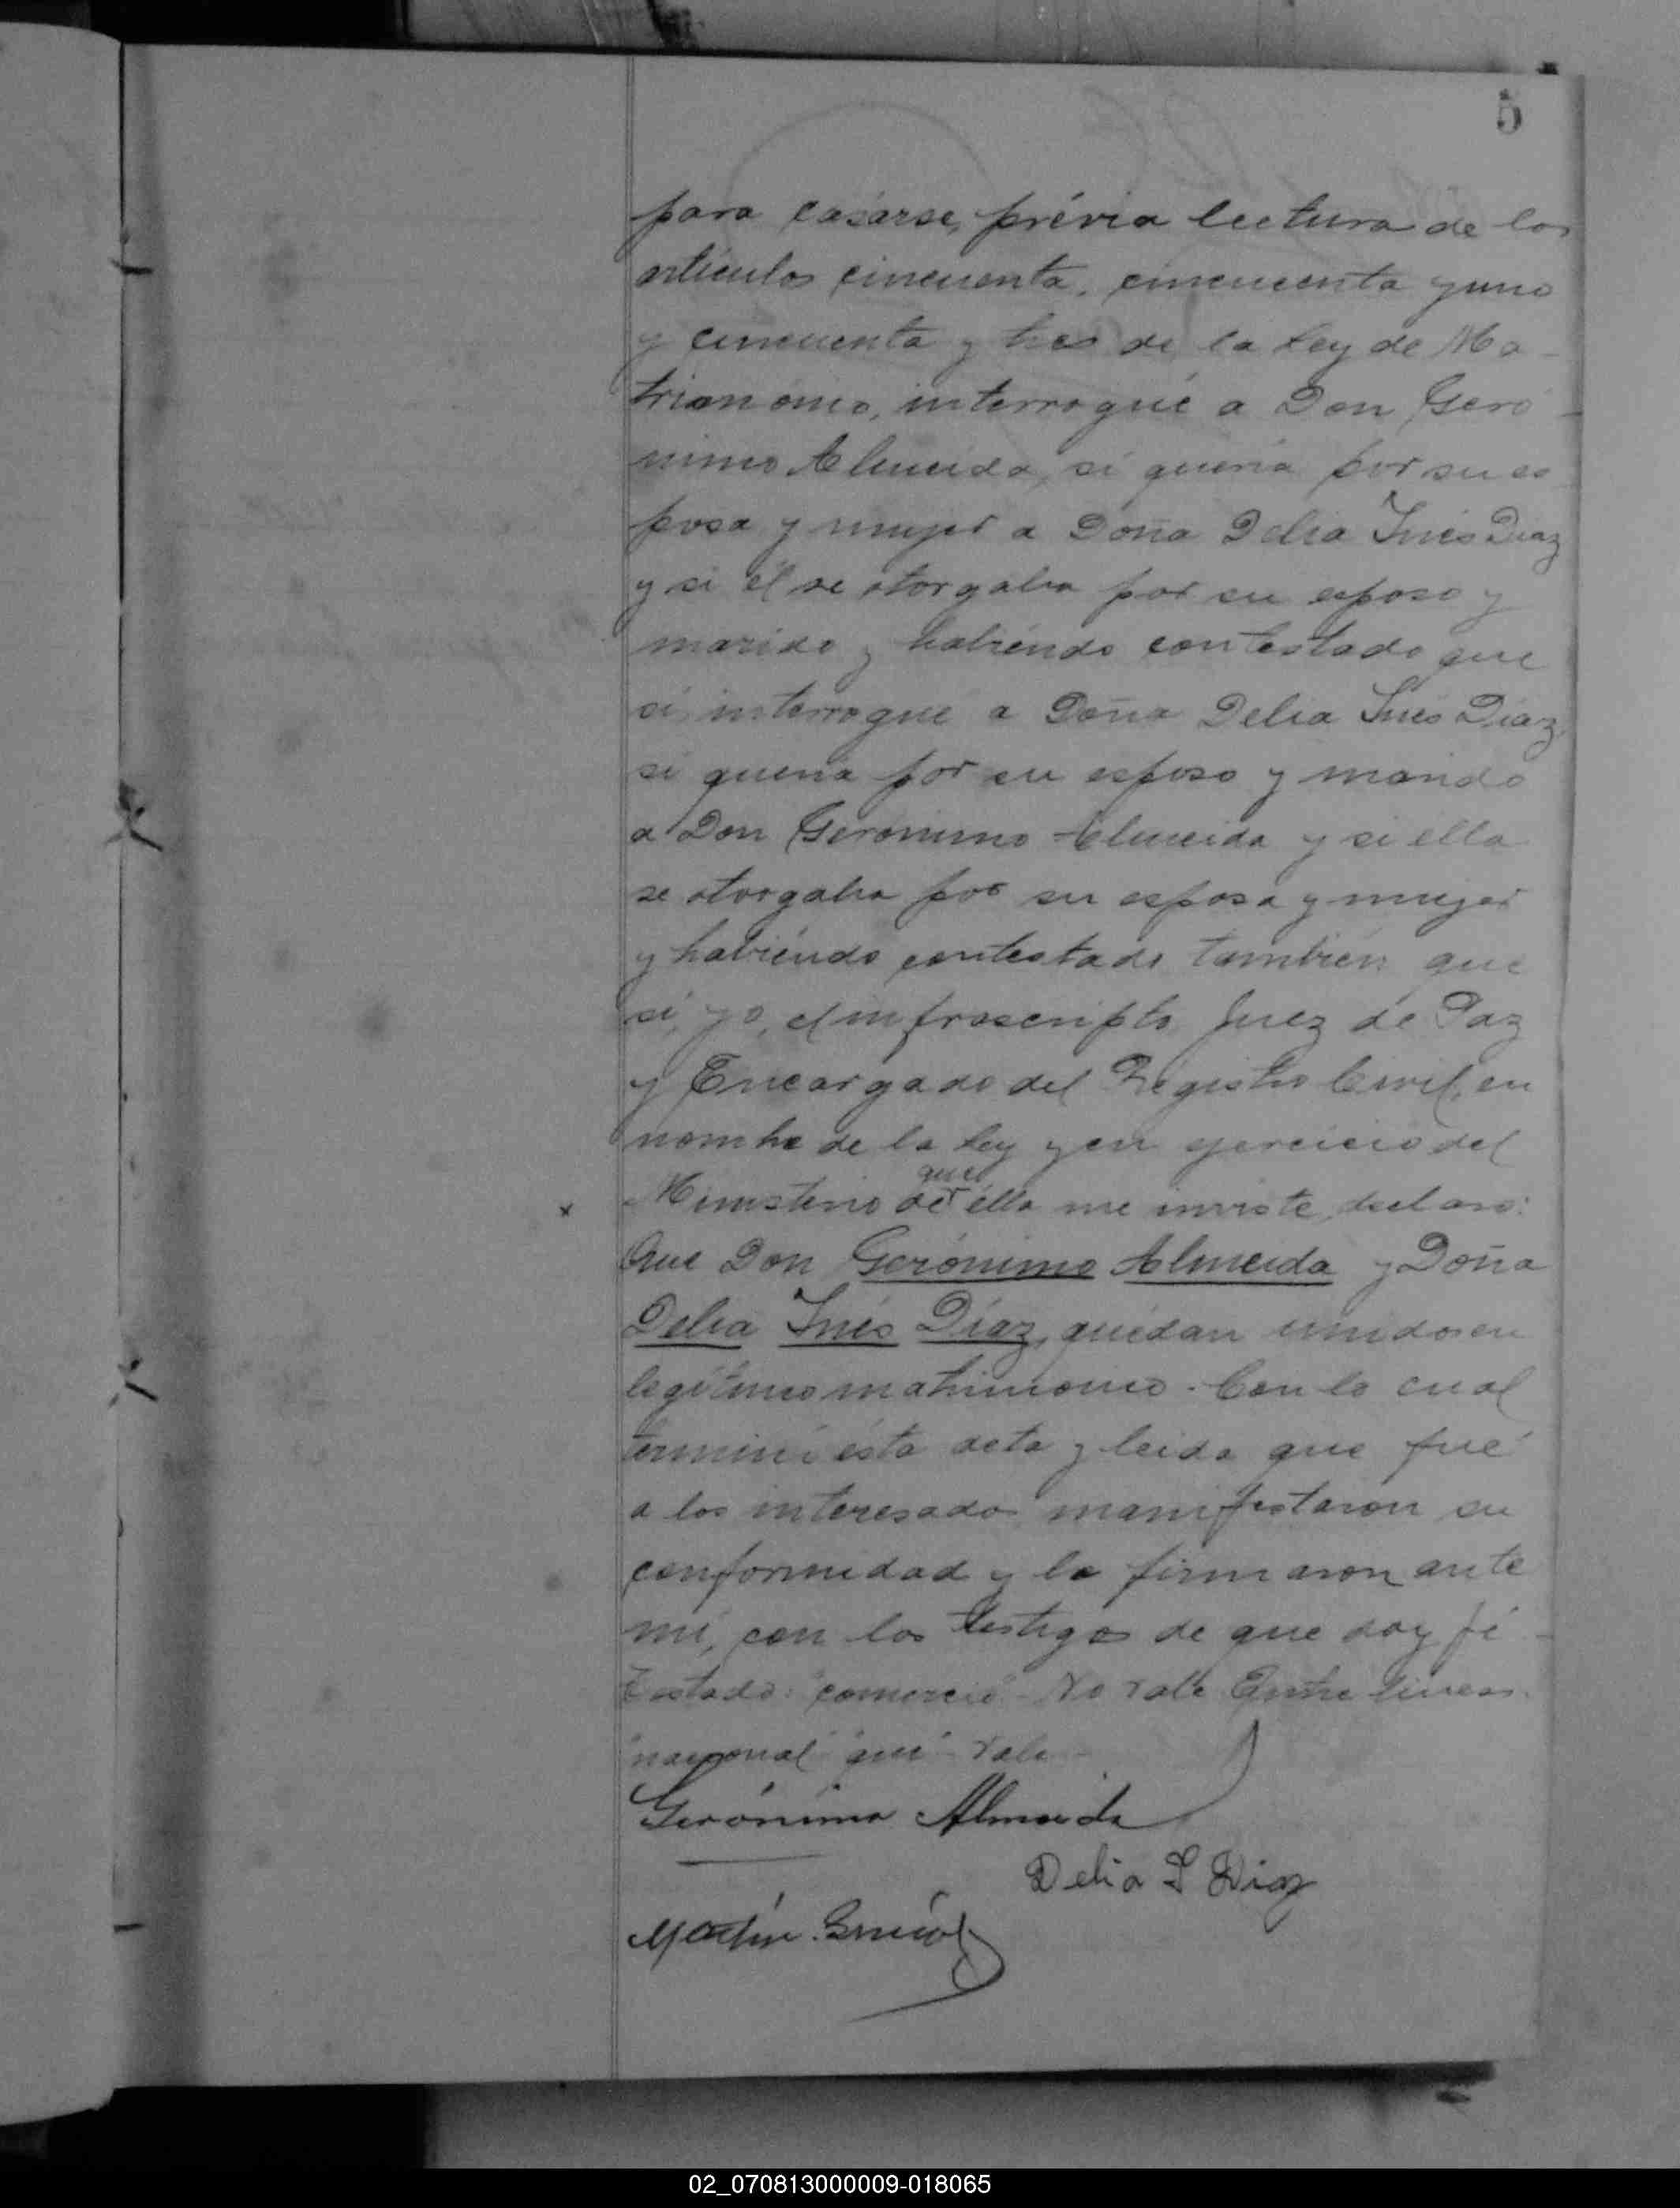 5
para casarse, prévia lectura de los
artículos cincuenta, cincuenta y uno
y cincuenta y tres de la Ley de Ma-
trimonio, interrogué a Don Geró-
nimo Almeida, si quería por su es
posa y mujer a Doña Delia Inés Díaz
y si él se otorgaba por su esposo y
marido y habiéndo contestado que
sí, interrogué a Doña Delia Inés Díaz,
si quería por su esposo y marido
a Don Gerónimo Almeida y si ella
se otorgaba por su esposa y mujer
y habiéndo contestado también que
sí, yo, el infrascripto Juez de Paz
y Encargado del Registro Civil, en
nombre de la Ley y en ejercicio del
que
x Ministerio de élla me inviste, declaro:
Que Don Gerónimo Almeida y Doña
Delia Inés Díaz, quedan unidos en
legítimo matrimonio. Con lo cual
terminé ésta acta y leída que fué
a los interesados manifestaron su
conformidad y la firmaron ante
mí, con los testigos de que doy fé -
Testado: "comercio" - No vale Entre lineas.
"nacional" "que" - Vale -
Gerónimo Almeida
Delia I Diaz
Martín
02_070813000009-018065